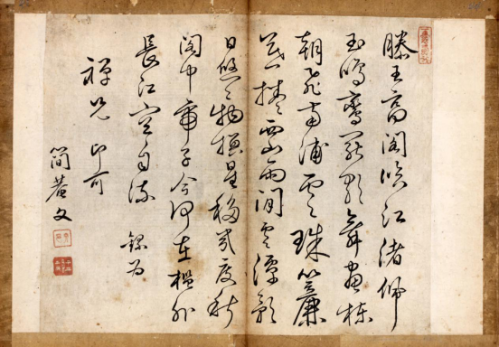 滕王高閣臨江渚佩
玉鳴鸞罷歌舞畫棟
朝飛南浦雲珠簾
暮捲西山雨閒雲潭影
日悠〻物換星移幾度秋
閣中帝子今何在檻外
長江空自流 錄為
禪兄 印可
簡文